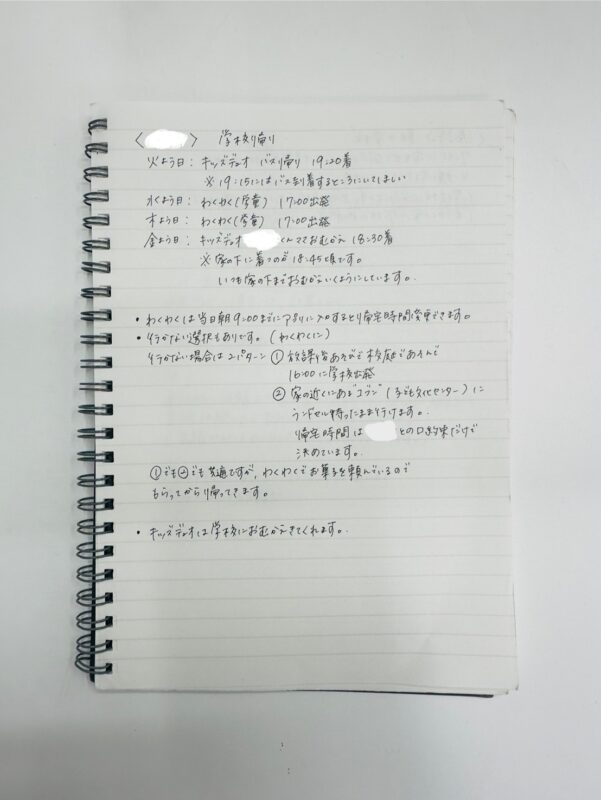 〈　　〉 学校り帰り
火よう日： キッズデュオ バス帰り 19:20着
※ 19:15にはバス到着するところにいてほしい
水よう日： わくわく(学童) 17:00出発
木よう日： わくわく(学童) 17:00出発
金よう日： キッズデュオ くんママおむかえ 18:30着
※ 家の下に着つのが 18:45頃です。
いつも家の下までおむかえいくようにしています。
• わくわくは当日朝9:00までにアプリに入力すると帰宅時間変更できます。
• 行かない選択もありです。(わくわくに)
行かない場合は2パターン ① 放課後あそびで校庭であそんで
16:00に学校出発
② 家の近くにある"ゴブン"(子ども文化センター)に
ランドセル持ったまま行けます。
帰宅時間は との口約束だけで
決めています。
①でも②でも共通ですが、わくわくでお菓子を頼んでいるので
もらってから帰ってきます。
• キッズデュオは学校におむかえきてくれます。